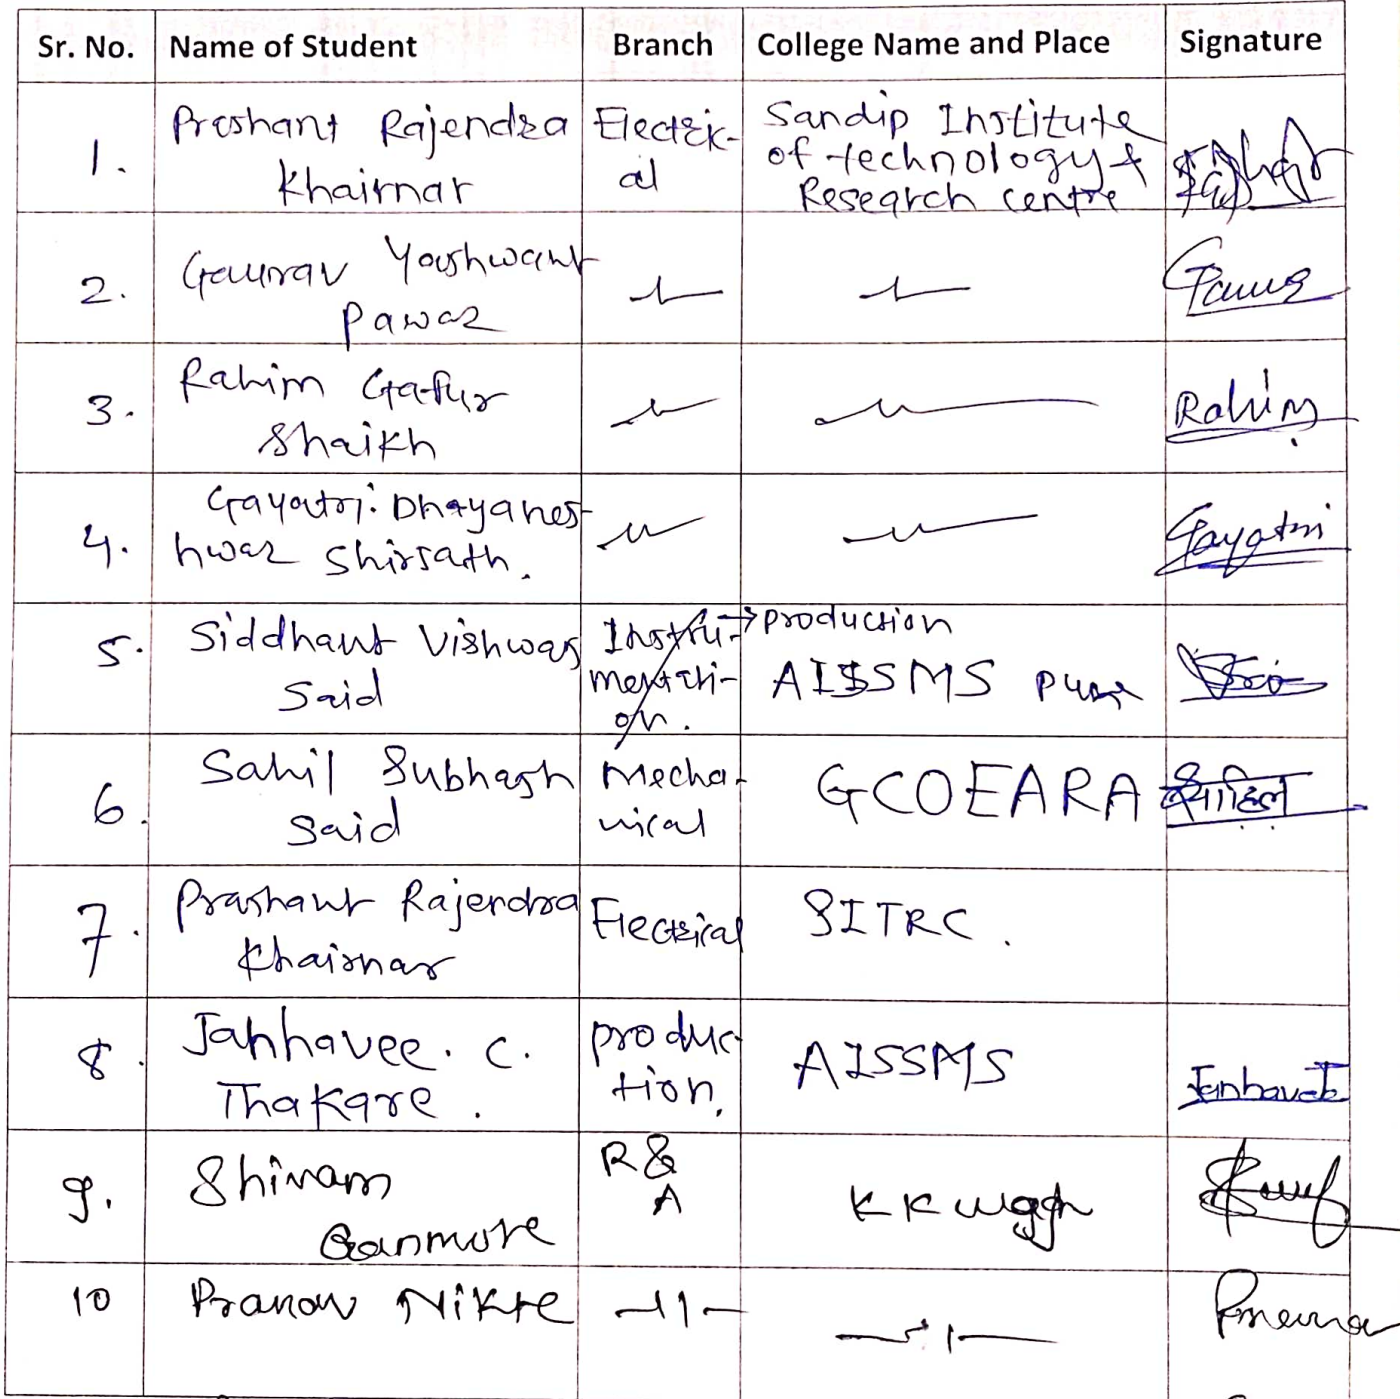 Sr. No. Name of Student Branch College Name and Place Signature
1. Prashant Rajendra Khairnar Electrical Sandip Institute of technology & Research centre
2. Gaurav Yashwant Pawar —〃— —〃—
3. Rahim Gafur Shaikh —〃— —〃— Rahim
4. Gayatri Dhayaneshwar Shirsath. —〃— —〃— Gayatri
5. Siddhant Vishwas Said Instrumentation. → production AISSMS pune
6. Sahil Subhash Said Mechanical GCOEARA साहिल
7. Prashant Rajendra Khairnar Electrical SITRC.
8. Jahhavee. C. Thakare. production. AISSMS
9. Shivam Ganmore R & A KKW
10 Pranav Nikte —〃— —〃—